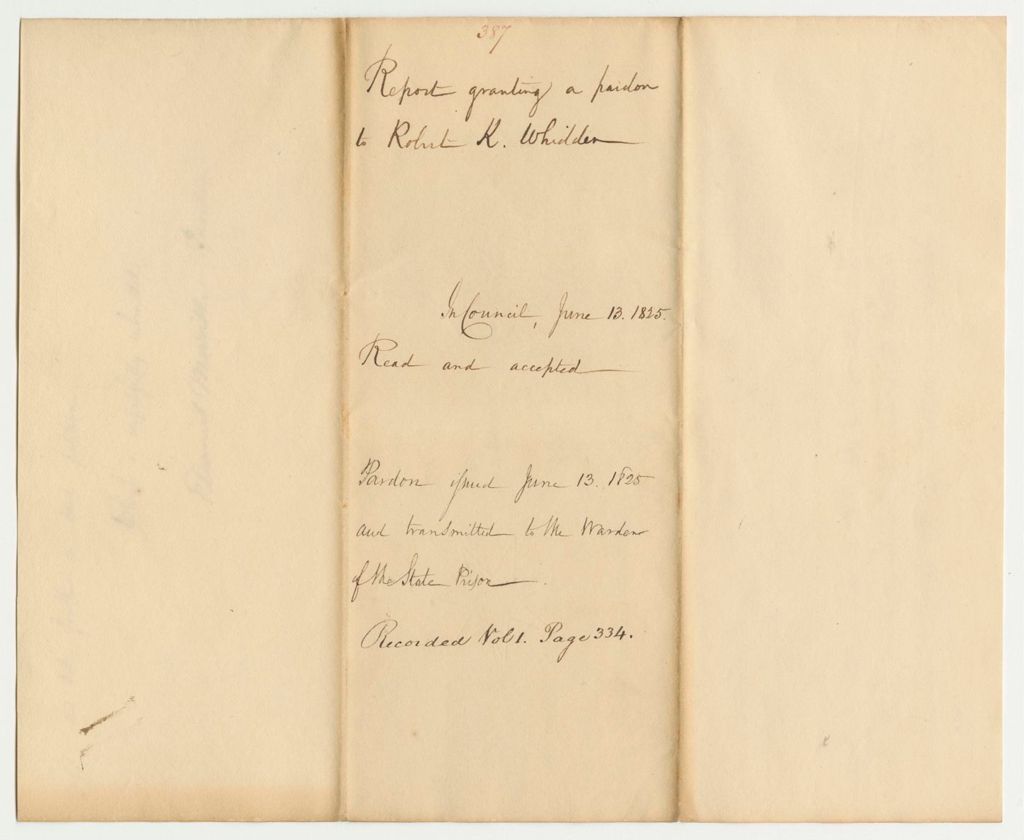 387
Report granting a pardon
to Robert K. Whidden
In Council, June 13. 1825.
Read and accepted
Pardon issued June 13. 1825
and transmitted to the Warden
of the State Prison.
Recorded Vol 1. Page 334.